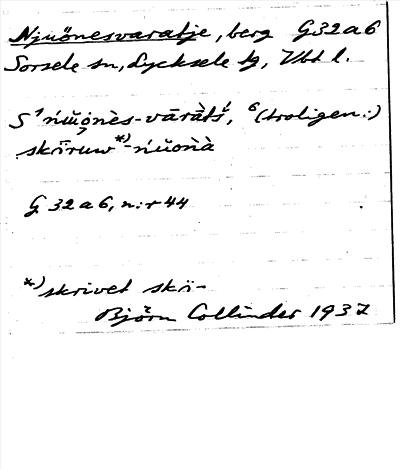 Njuönesvaratje, berg G32a6
Sorsele sn, Lycksele lg, Vbt l.
S¹ ńu̯ŏ́nès-vāràtś, ⁶(troligen:)
skȫruw*)-ńŭonà
G 32 a 6, n:r 44
*) skrivet skö-
Björn Collinder 1937